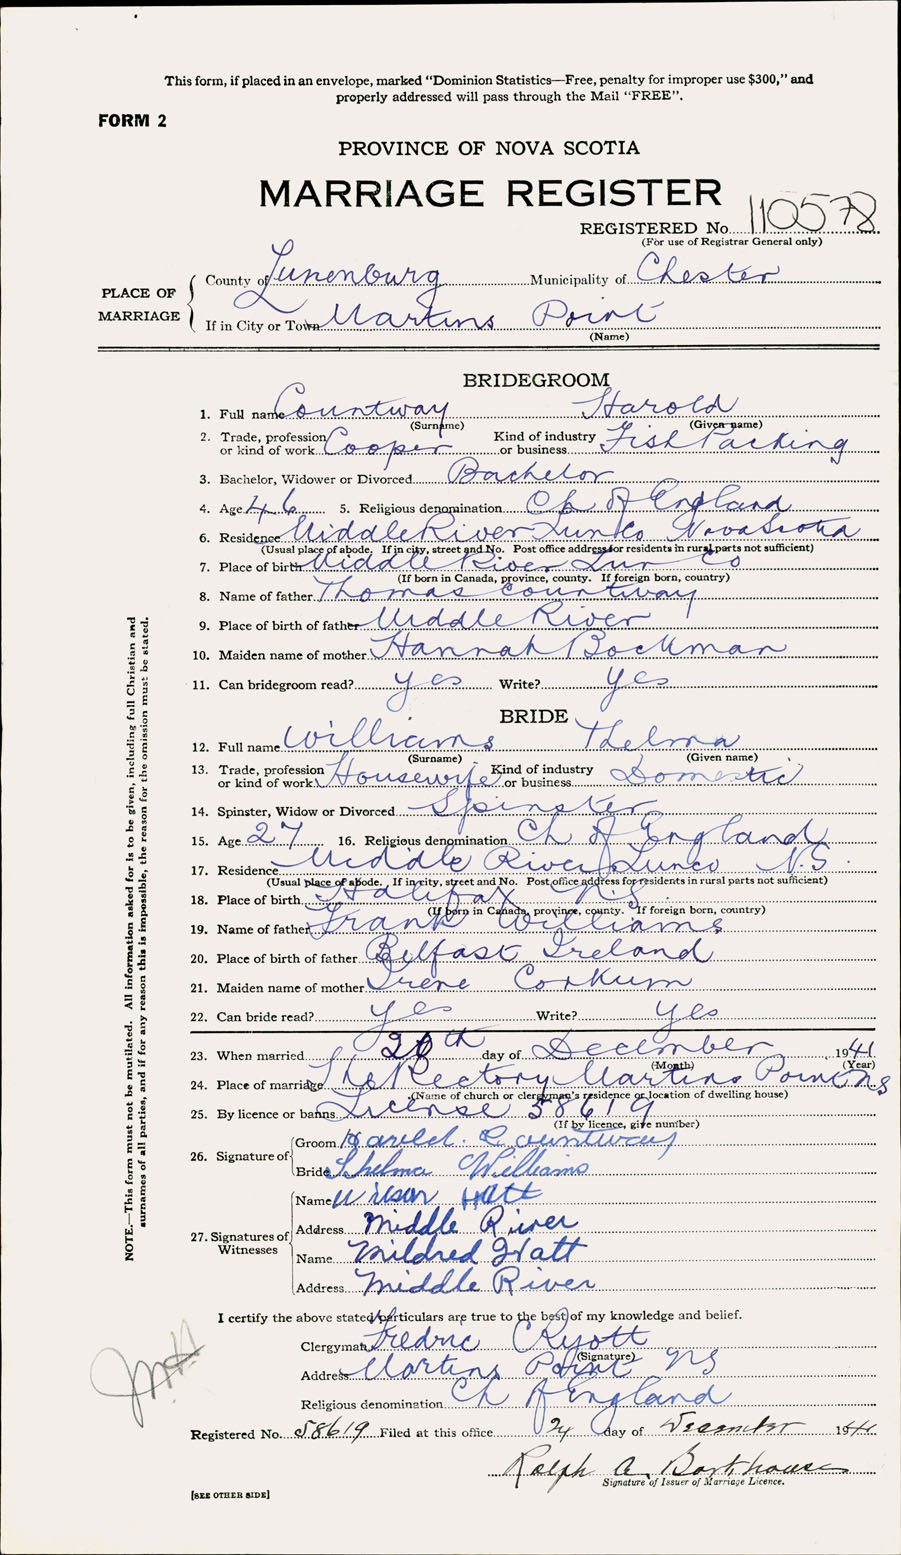 This form, if placed in an envelope, marked “Dominion Statistics—Free, penalty for improper use $300,” and
properly addressed will pass through the Mail “FREE”.
FORM 2
PROVINCE OF NOVA SCOTIA
MARRIAGE REGISTER
REGISTERED No. 110578
(For use of Registrar General only)
PLACE OF MARRIAGE
County of Lunenburg Municipality of Chester
If in City or Town Martins Point
(Name)
BRIDEGROOM
1. Full name Countway Harold
(Surname) (Given name)
2. Trade, profession or kind of work Cooper Kind of industry or business Fish Packing
3. Bachelor, Widower or Divorced Bachelor
4. Age 46 5. Religious denomination Ch of England
6. Residence Middle River Lun Co Nova Scotia
(Usual place of abode. If in city, street and No. Post office address for residents in rural parts not sufficient)
7. Place of birth Middle River Lun Co
(If born in Canada, province, county. If foreign born, country)
8. Name of father Thomas Countway
9. Place of birth of father Middle River
10. Maiden name of mother Hannah Bockman
11. Can bridegroom read? yes Write? yes
BRIDE
12. Full name Williams Thelma
(Surname) (Given name)
13. Trade, profession or kind of work Housewife Kind of industry or business Domestic
14. Spinster, Widow or Divorced Spinster
15. Age 27 16. Religious denomination Ch of England
17. Residence Middle River Lun Co N.S.
(Usual place of abode. If in city, street and No. Post office address for residents in rural parts not sufficient)
18. Place of birth Halifax N.S.
(If born in Canada, province, county. If foreign born, country)
19. Name of father Frank Williams
20. Place of birth of father Belfast Ireland
21. Maiden name of mother Irene Corkum
22. Can bride read? yes Write? yes
23. When married 20th day of December 1941
(Month) (Year)
24. Place of marriage The Rectory Martins Point NS
(Name of church or clergyman's residence or location of dwelling house)
25. By licence or banns License 58619
(If by licence, give number)
26. Signature of
Groom Harold Countway
Bride Thelma Williams
27. Signatures of Witnesses
Name Wilson Hatt
Address Middle River
Name Mildred Hatt
Address Middle River
I certify the above stated particulars are true to the best of my knowledge and belief.
Clergyman Fredric C Ryott
(Signature)
Address Martins Point NS
Religious denomination Ch of England
Registered No. 58619 Filed at this office 24 day of December 1941
Ralph A. Barkhouse
Signature of Issuer of Marriage Licence.
[SEE OTHER SIDE]
NOTE.—This form must not be mutilated. All information asked for is to be given, including full Christian and
surnames of all parties, and if for any reason this is impossible, the reason for the omission must be stated.